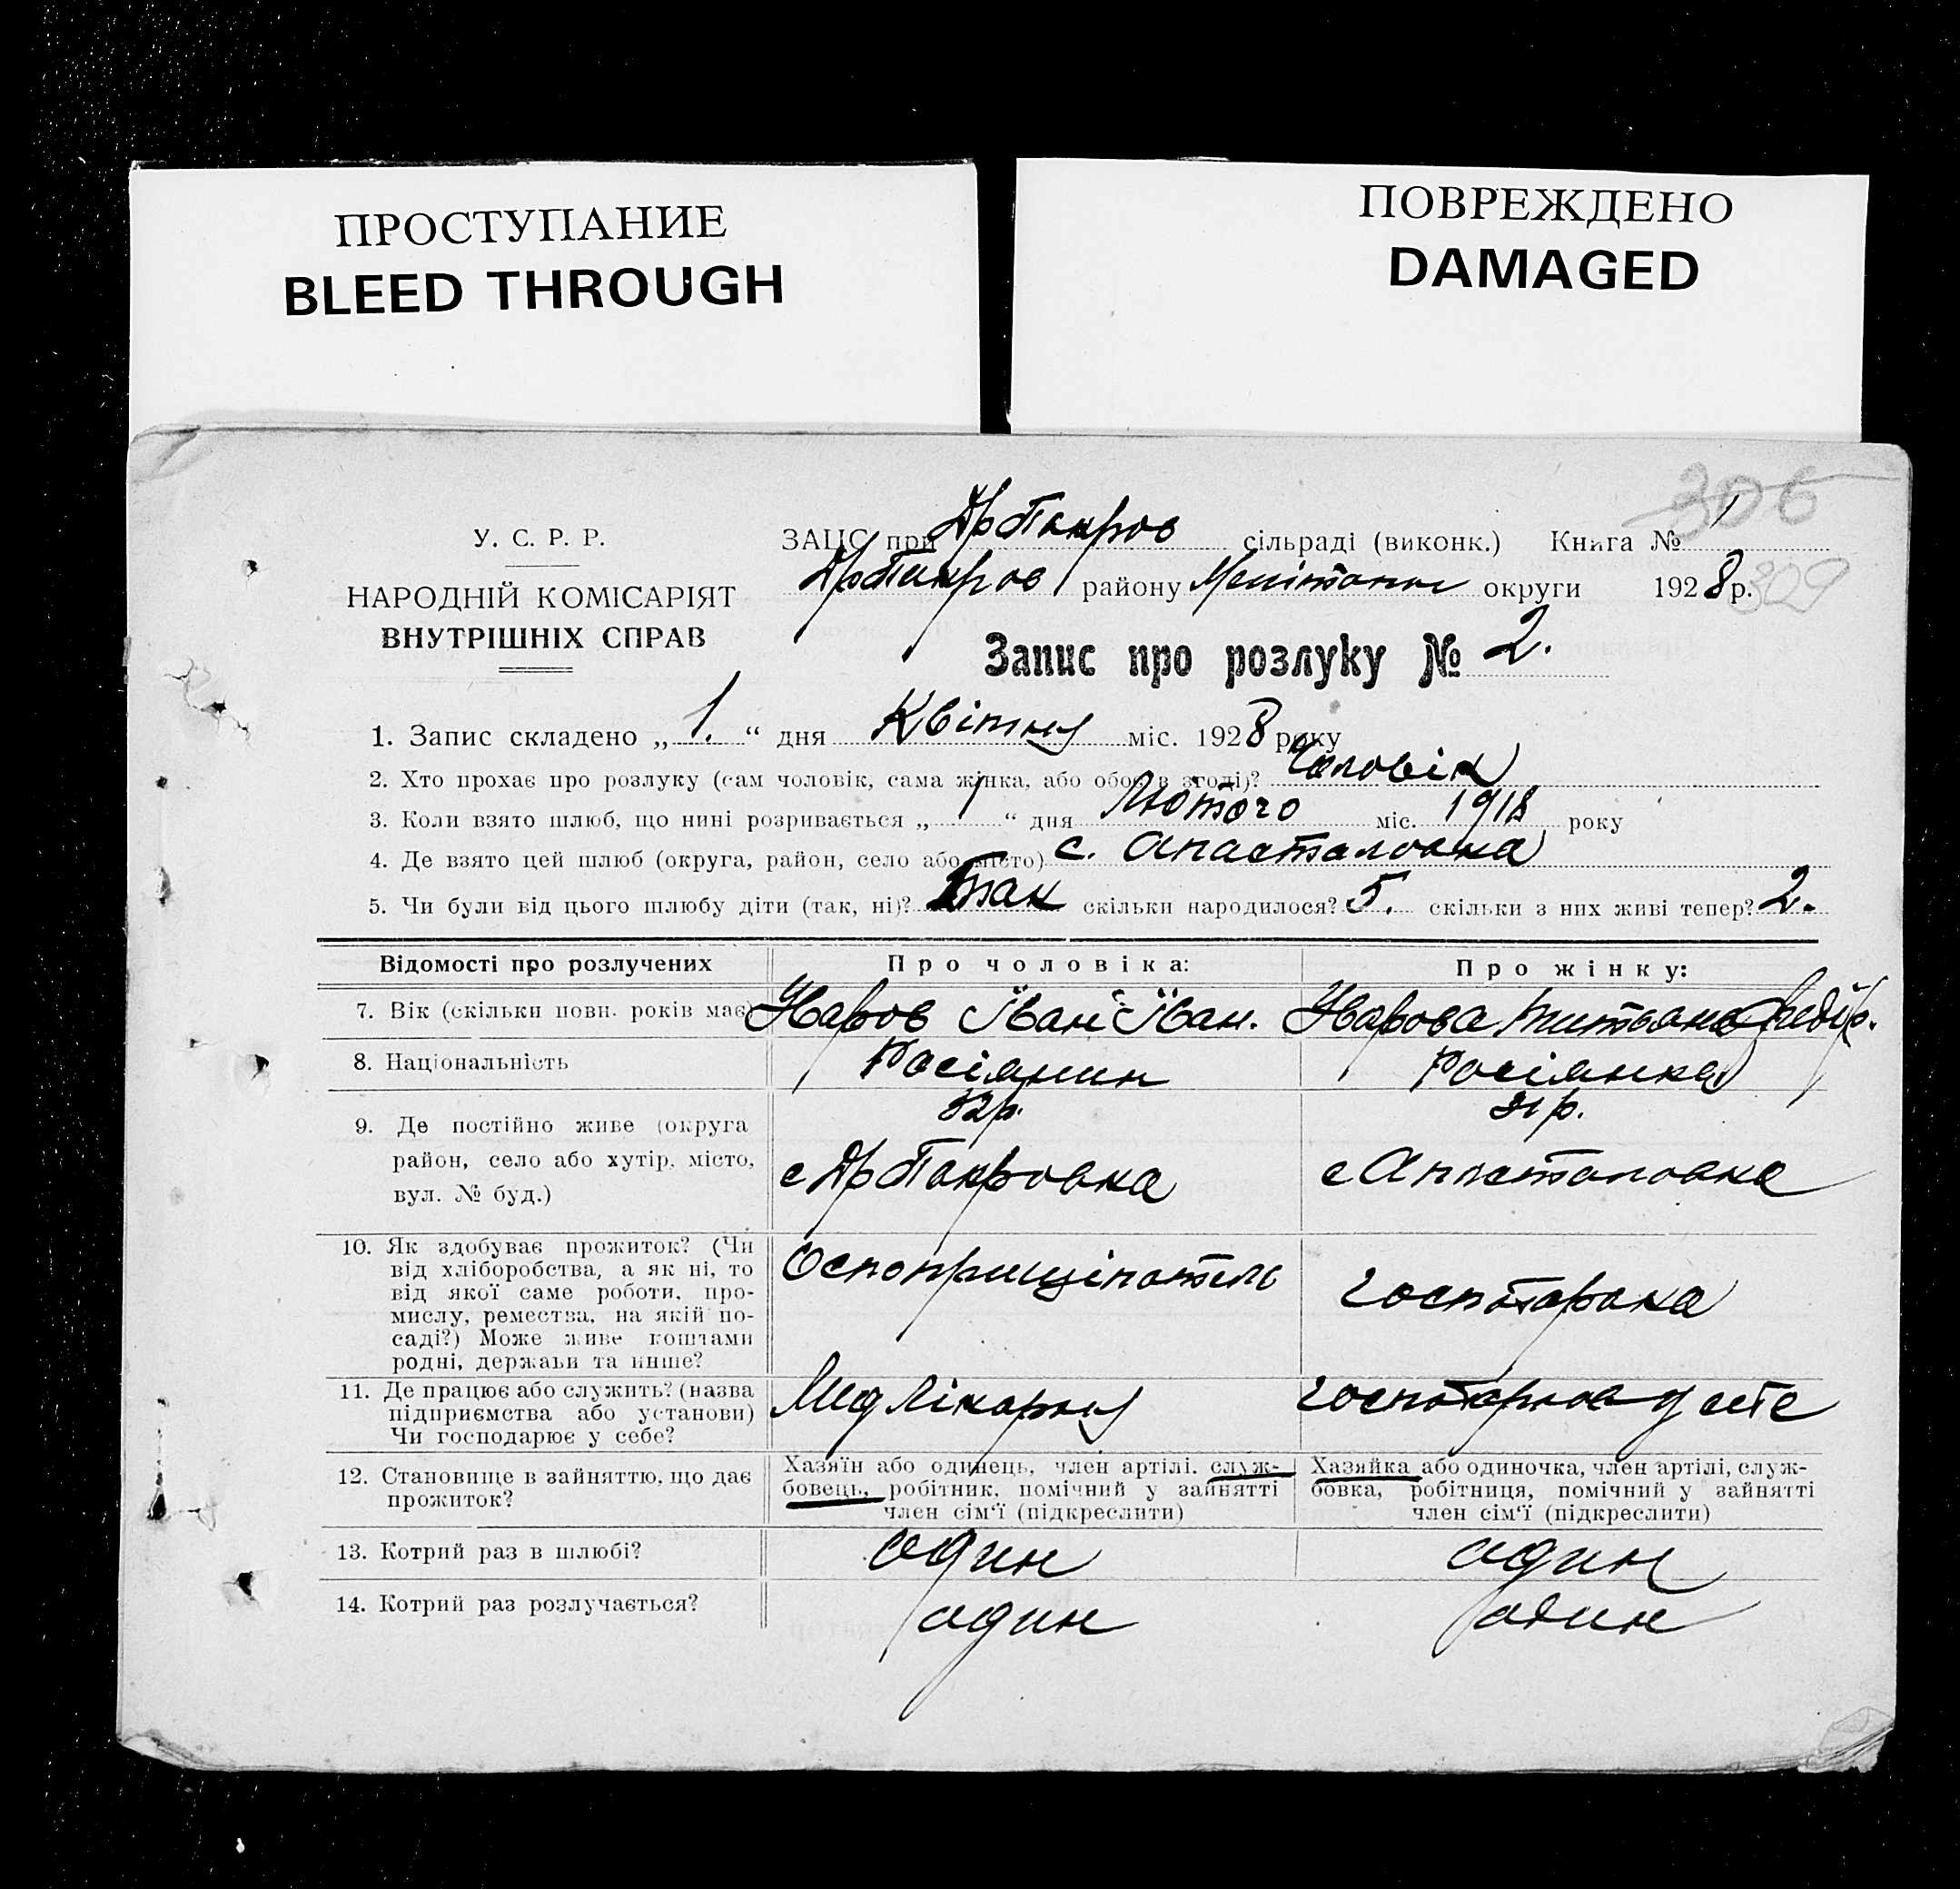 ПРОСТУПАНИЕ
BLEED THROUGH
ПОВРЕЖДЕНО
DAMAGED
306
309
У. С. Р. Р.
НАРОДНІЙ КОМІСАРІЯТ
ВНУТРІШНІХ СПРАВ
ЗАЦС при ДрПокров сільраді (виконк.) Книга № 1
ДрПокров району Мелітопол округи 1928 р.
Запис про розлуку № 2.
1. Запис складено „ 1. “ дня Квітня міс. 1928 року
2. Хто прохає про розлуку (сам чоловік, сама жінка, або обоє в згоді)? Чоловік
3. Коли взято шлюб, що нині розривається „ 1 “ дня Лютого міс. 1918 року
4. Де взято цей шлюб (округа, район, село або місто) с. Апастоловка
5. Чи були від цього шлюбу діти (так, ні)? Так скільки народилося? 5. скільки з них живі тепер? 2.
Відомості про розлучених Про чоловіка: Про жінку:
7. Вік (скільки повн. років має) Іван Іван.
8. Національність Росіянин Росіянка
32р. 31р.
9. Де постійно живе (округа
район, село або хутір, місто,
вул. № буд.)
с ДрПокровка с Апостоловка
10. Як здобуває прожиток? (Чи
від хліборобства, а як ні, то
від якої саме роботи, про-
мислу, ремества, на якій по-
саді?) Може живе коштами
родні, держави та инше?
11. Де працює або служить? (назва
підприємства або установи)
Чи господарює у себе?
12. Становище в зайняттю, що дає
прожиток?
Хазяїн або одинець, член артілі, служ-
бовець, робітник, помічний у зайнятті
член сім‘ї (підкреслити)
Хазяйка або одиночка, член артілі, служ-
бовка, робітниця, помічний у зайнятті
член сім‘ї (підкреслити)
13. Котрий раз в шлюбі? один один
14. Котрий раз розлучається? один один